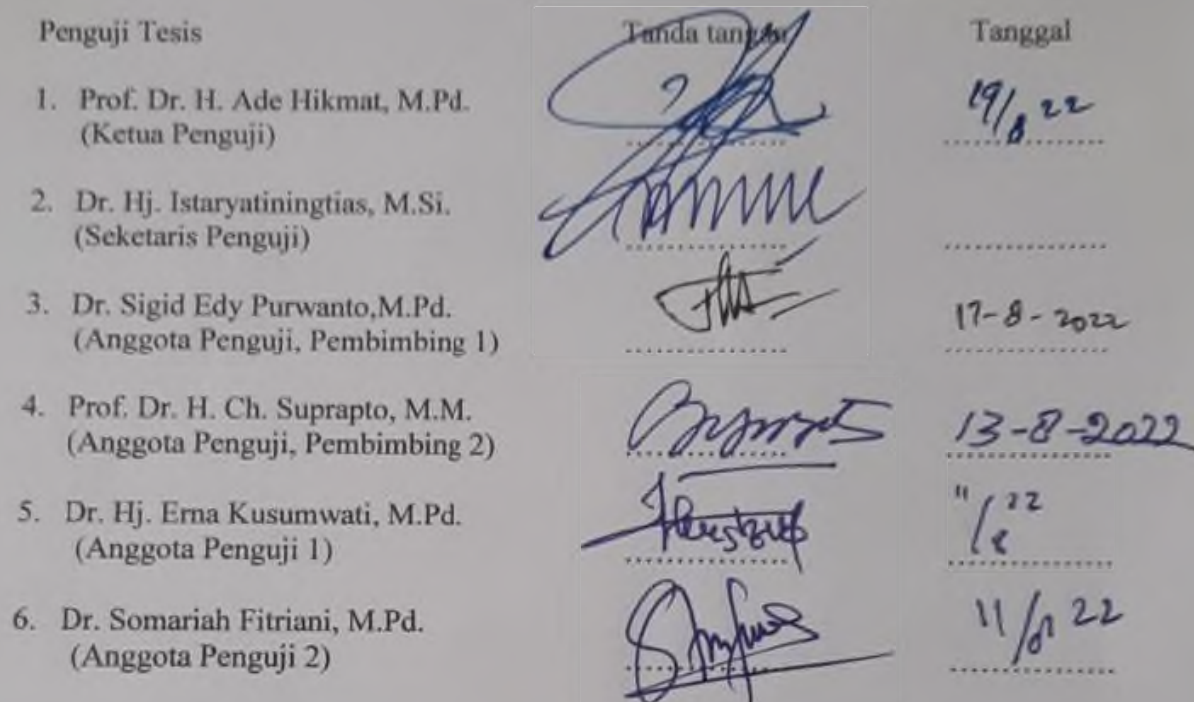 Penguji Tesis Tanda tangan Tanggal
1. Prof. Dr. H. Ade Hikmat, M.Pd. 19/8 22
(Ketua Penguji)
2. Dr. Hj. Istaryatiningtias, M.Si.
(Seketaris Penguji)
3. Dr. Sigid Edy Purwanto,M.Pd. 17-8-2022
(Anggota Penguji, Pembimbing 1)
4. Prof. Dr. H. Ch. Suprapto, M.M. 13-8-2022
(Anggota Penguji, Pembimbing 2)
5. Dr. Hj. Erna Kusumwati, M.Pd. 11/8 22
(Anggota Penguji 1)
6. Dr. Somariah Fitriani, M.Pd. 11/8 22
(Anggota Penguji 2)